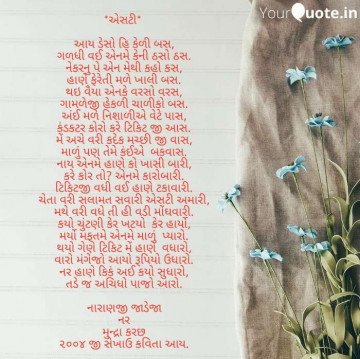 YourQuote.in
"એસટી"
આય ડેસો હિ કેળી બસ,
ગળધી વઈ એનમે કેની ઠસો ઠસ.
નેકરનુ પે એન મેથી કહો કસ,
હાણે ફેરેતી મળે ખાલી બસ.
થઇ વૈયા એનકે વરસો વરસ,
ગામળેજી હેકળી ચાળીકો બસ.
અંઈ મળે નિશાળીએ વેટે પાસ,
કંડકટર કોરો કરે ટિકિટ જી આસ.
મેં અચે વરી કદેક મચ્છી જી વાસ,
માળુ પણ તેમે કંઈએ બકવાસ.
નાય એનમે હાણે કો ખાસી બારી,
કરે કોર તો? એનમે કારોબારી.
ટિકિટજી વધી વઈ હાણે ટકાવારી.
ચેતા વરી સલામત સવારી એસટી અમારી,
મથે વરી વધે તી હી વડી મોંઘવારી.
કયો ચુંટણી કેર ખટયો કેર હાર્યો,
મયાં મફતમે એનમે માળુ પ્યારો.
થયો ગેણે ટિકિટ મેં હાણે વધારો,
વારો મંગેજો આયો રૂપિયો ઉધારો.
નર હાણે કિક અઈ કયો સુધારો,
તડે જ અચિધો પાજો આરો.
નારાણજી જાડેજા
નર
મુન્દ્રા કચ્છ
૨૦૦૪ જી સેખાઉ કવિતા આય.